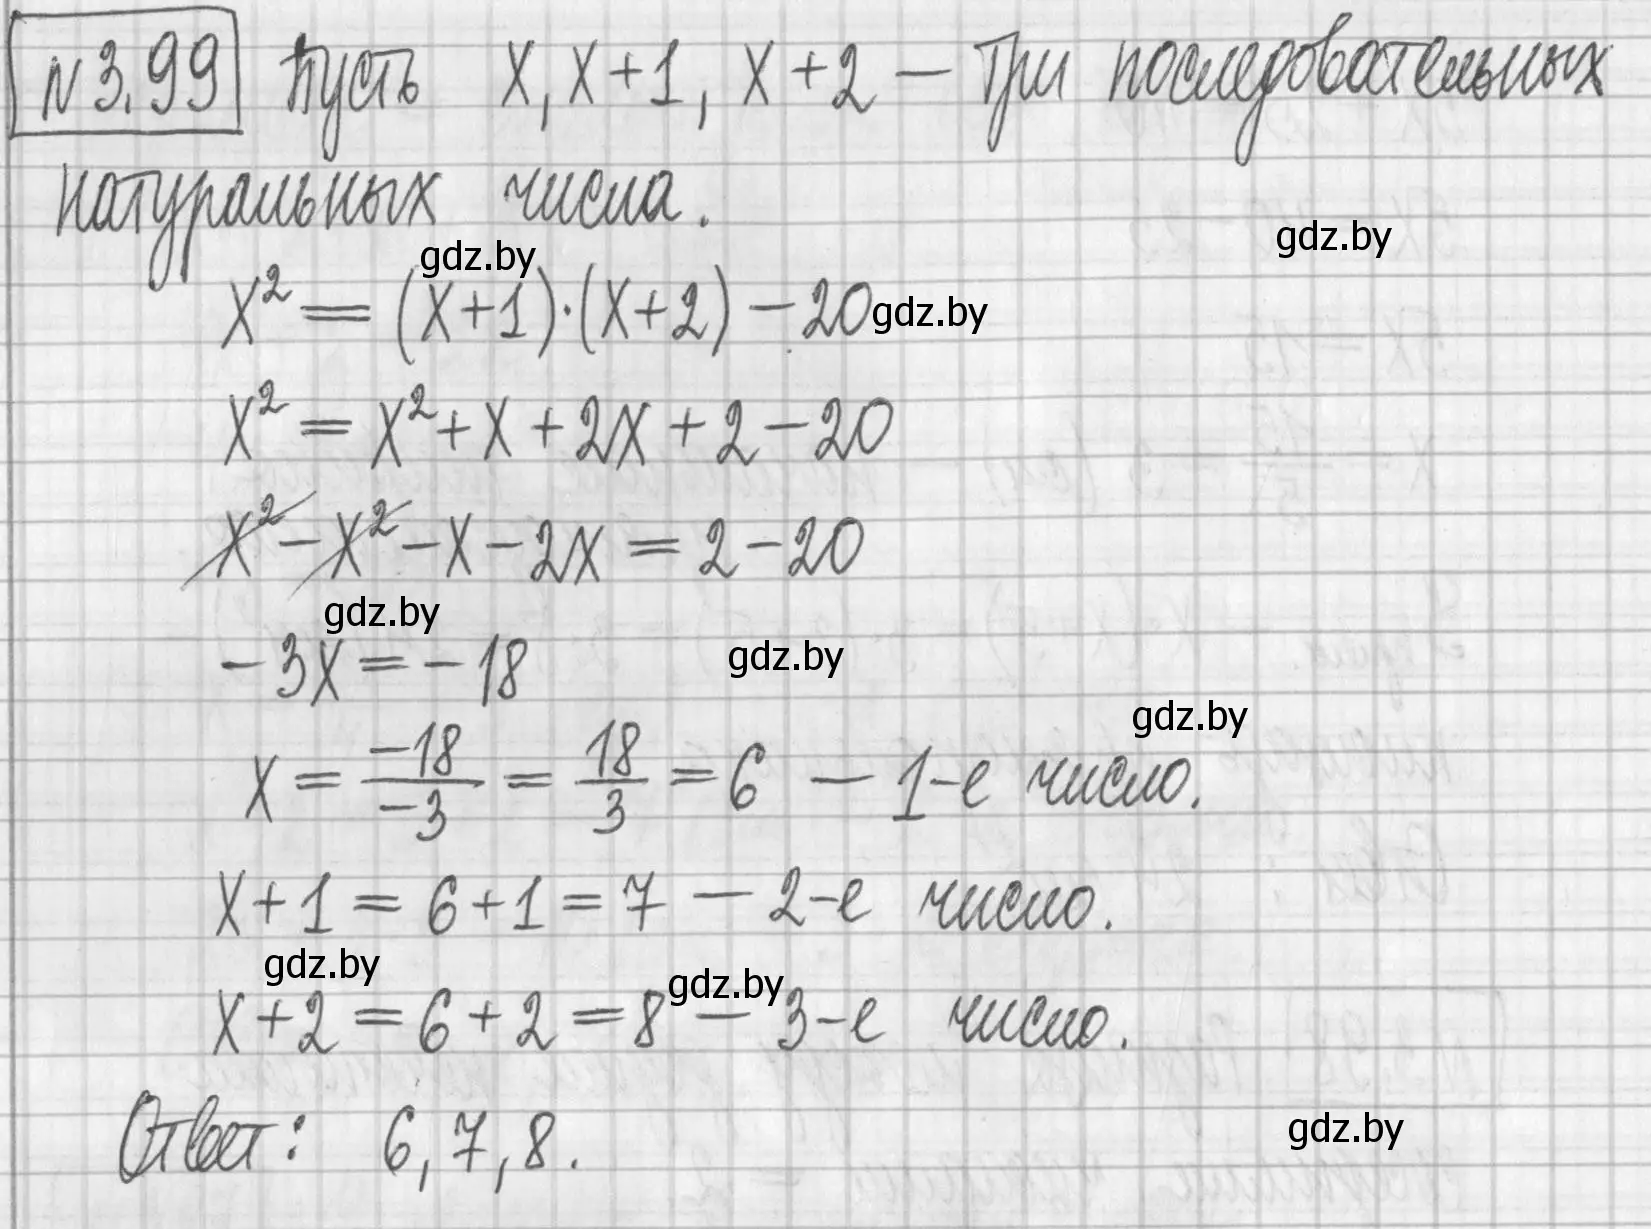 №3.99 Пусть x, x+1, x+2 — три последовательных
натуральных числа.
gdz.by
gdz.by
x² = (x+1)·(x+2) − 20
gdz.by
x² = x² + x + 2x + 2 − 20
x² − x² − x − 2x = 2 − 20
gdz.by
−3x = −18
gdz.by
gdz.by
x = −18/−3 = 18/3 = 6 — 1-е число.
x+1 = 6+1 = 7 — 2-е число.
gdz.by
gdz.by
x+2 = 6+2 = 8 — 3-е число.
gdz.by
Ответ: 6, 7, 8.